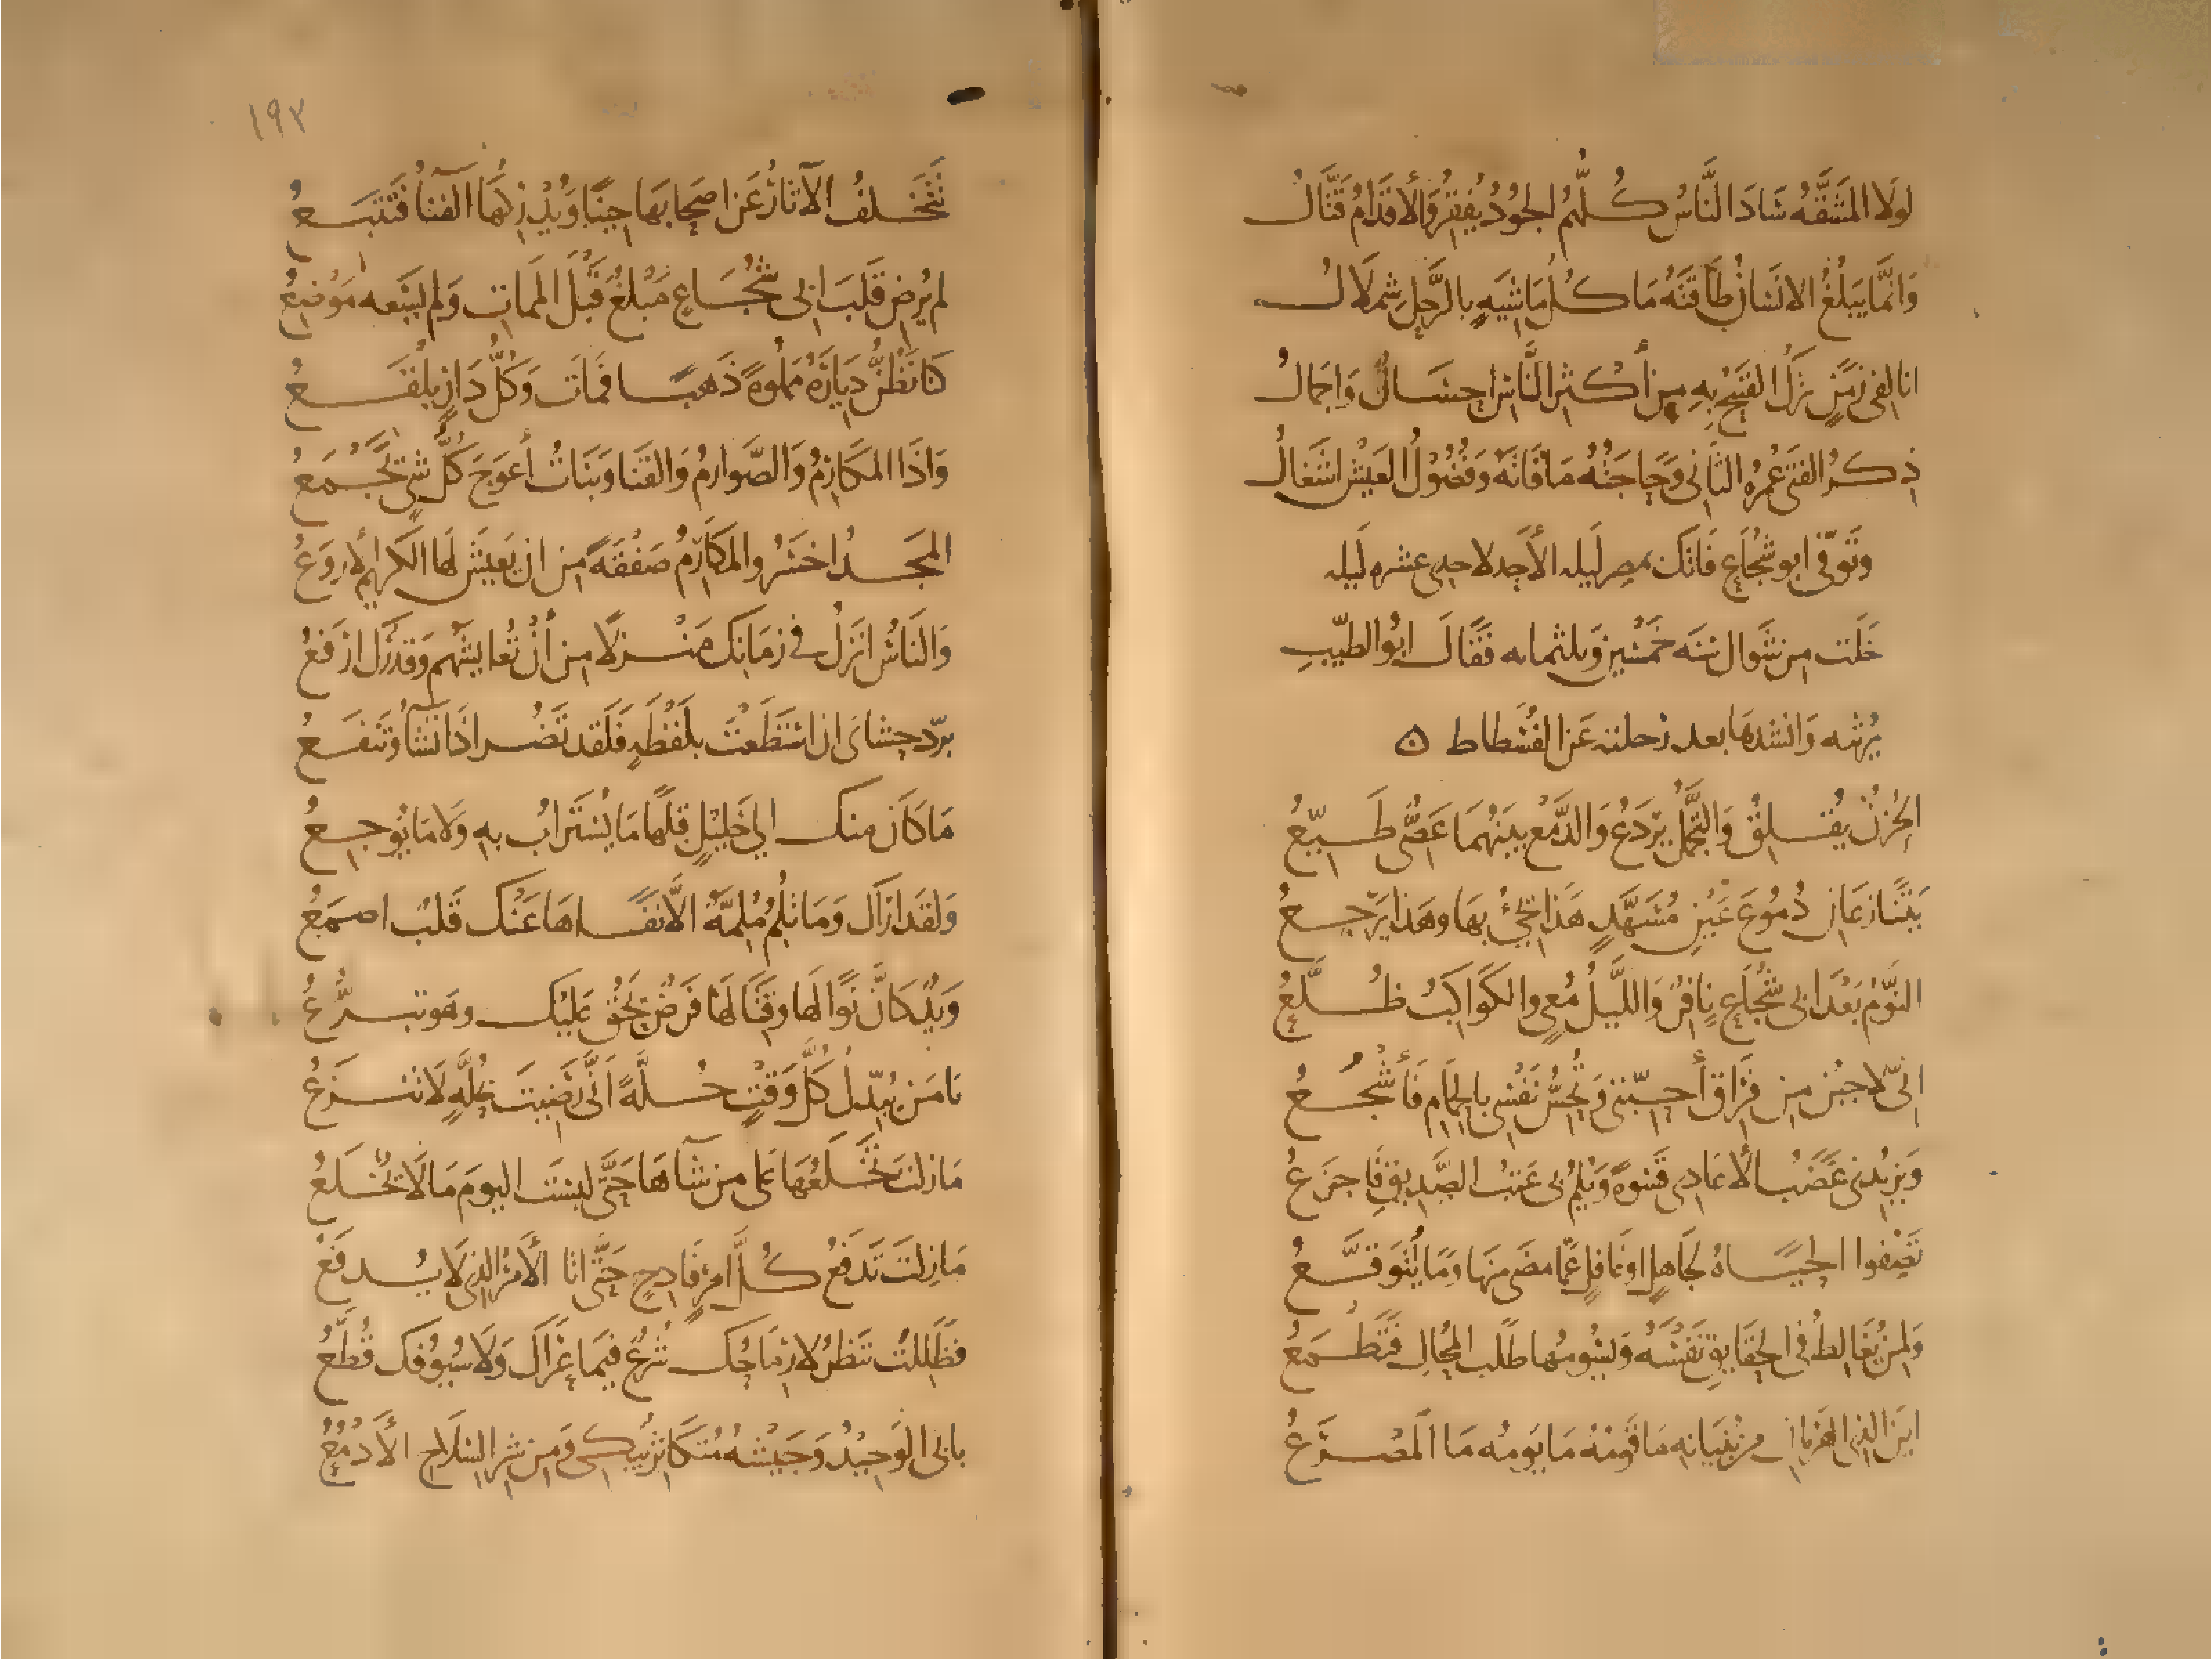 لولَا المشَقَّهُ سَادَ النَّاسُ كُلُّهُمُ الجُودُ يُفقِرُ وَالأقدَامُ قَتَّالُ
وَانَّمَا يَبلُغُ الانسَانُ طَاقَتَهُ مَا كُلُّ مَاشِيَهٍ بالرَّحلِ شِملَالُ
انا لفى زمَنٍ تركُ القَبيحِ بِهِ مِن أكثرِ النَّاسِ احسَانٌ وَاجمَالُ
ذِكرُ الفَتَى عُمرُهُ الثَانى وَحَاجَتُهُ مَا فَاتَهُ وَفُضُولُ العَيشِ اشغَالُ
وَتوَفّى ابو شُجَاعٍ فَاتك بمصر لَيله الأحَد لاحدى عشره ليله
خَلَت من شَوال سَنَه خَمسُين وَثلثمايه فقَالَ ابوُ الطيّب
يُرثيه وَانشدهَا بعد رحلته عَن الفُسطاط ه
الحُزنُ يُقلِقُ وَالتَجَمُّلُ يَردَعُ وَالدَّمعُ بينَهُمَا عَصىٌّ طَيّعُ
يَتَنَازعَانِ دُمُوعَ عَينِ مُسَهَّدٍ هَذا يَجىُ بهَا وهَذا يَرجِعُ
النَّوْمُ بَعْدَ ابى شُجَاعٍ نَافِرٌ وَاللَّيلُ مُعىٍ والكَوَاكبُ ظُلَّعُ
انّى لاجبُن مِن فِرَاق أحِبّتى وَتُحِسُّ نَفسى بالحِمَامِ فَأشجُعُ
وَيزيدُنى غَضَبُ الأعَادى قَسوَةً وَيُلِمُّ بى عَتبُ الصَّديقِ فَاجزعُ
تَصفوا الحيَاهُ لجَاهلٍ اوغَافلٍ عَمّا مضَى منهَا ومَا يُتَوقَّعُ
وَلمن يُغَالِطُ فى الحقَايقِ نَفسَهُ وَيسُومُها طَلَب المحُالِ فَتَطمَعُ
اينَ الذِى الهَرمَانِ من بُنيَانِه مَا قَومُهُ مَا يَومُه مَا المَصْرَعُ
١٩٣
تَتَخَلفُ الآثارُ عَن اصحَابهَا حِينًا وَيُدْرِكهَا الفَنَاُ فَتَتبَعُ
لم يُرضِ قَلبَ ابى شُجَاعٍ مَبلَغٌ قَبْلَ المَماتِ وَلم يسَعه مَوْضِعُ
كنا نَظُنُّ دِيَارَهُ مَملُوءةً ذَهَبًا فمَاتَ وَكُلُّ دَارٍ بلقَعُ
وَاذَا المَكَارِمُ وَالصَّوارِمُ وَالقَنَا وَبَنَاتُ أعوَجَ كُلُّ شىٍ تَجمَعُ
المجَدُ اخسَرُ والمكَارِمُ صَفقَةً مِن ان يَعيشَ لهَا الكريمُ الاروَعُ
وَالنَاسُ انزَلُ فى زمَانِك مَنزلًا مِن أنْ تُعايشَهُم وَقدرُك ارفَعُ
بَرّد حشاىَ ان استَطَعتَ بلَفظَةٍ فَلَقد تَضُر اذَا تَشَاُ وَتَنفَعُ
مَا كَانَ مِنك الى خَليلٍ قبلَهَا مَا يُستَرَابُ بهِ وَلا مَا يُوجِعُ
وَلقَد ارَاك وَمَا تُلِمُّ مُلِمَّةٌ الَّا نَفَاهَا عَنْك قَلبٌ اصمَعُ
وَيَدٌ كَانَّ نوَالهَا وقتَالهَا فَرضٌ يَحُقُّ عَليك وهَو تبرُّعُ
يَا مَن يُبَدّلُ كُلَّ وَقتٍ حُلَّةً أنَّى رَضيتَ بحُلَّةٍ لَا تنزَعُ
مَا زلتَ تَخلَعُهَا عَلى من شَآهَا حَتَّى لبستَ اليومَ مَا لَا تخلَعُ
مَا زِلتَ تَدفَعُ كُلَّ امرٍ فَادحٍ حَتَّى اتَا الأمرُ الذِى لَا يُدفَعُ
فظَلِلتَ تنظُر لا رِمَاحُك شُرَّعٌ فيمَا عَرَاكَ وَلَا سُيُوفُك قُطَّعُ
بابى الوَحيدُ وَجَيشُهُ مُتَكَاثرٌ يَبكى وَمِن شرِ السِلَاحِ الأدمُعُ